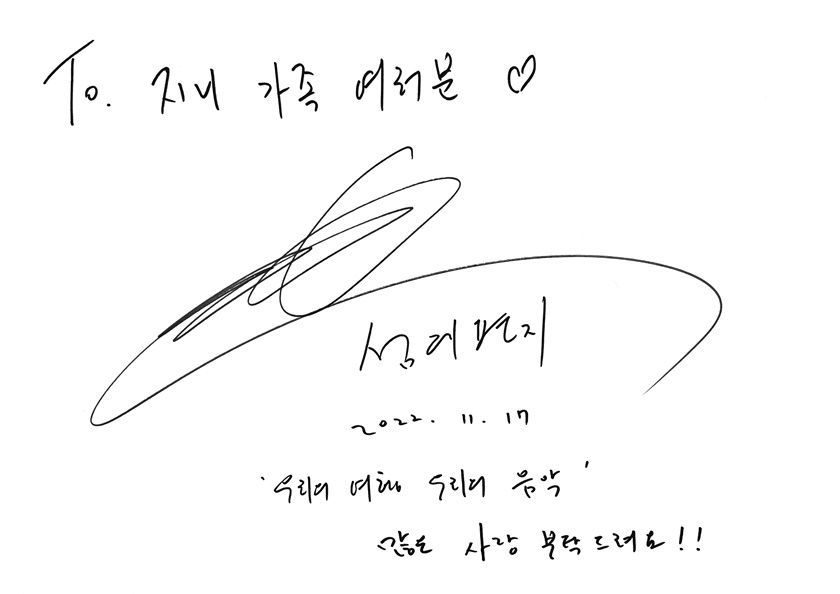 To. 지니 가족 여러분 ♡
섬의편지
2022. 11. 17
'우리의 여행 우리의 음악'
많은 사랑 부탁드려요!!